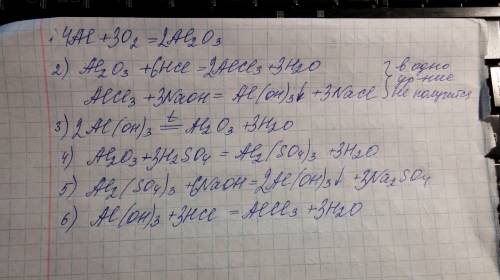 1) 4Al + 3O2 = 2Al2O3
2) Al2O3 + 6HCl = 2AlCl3 + 3H2O
AlCl3 + 3NaOH = Al(OH)3↓ + 3NaCl } в одно
не получится
3) 2Al(OH)3 =t= Al2O3 + 3H2O
4) Al2O3 + 3H2SO4 = Al2(SO4)3 + 3H2O
5) Al2(SO4)3 + 6NaOH = 2Al(OH)3↓ + 3Na2SO4
6) Al(OH)3 + 3HCl = AlCl3 + 3H2O